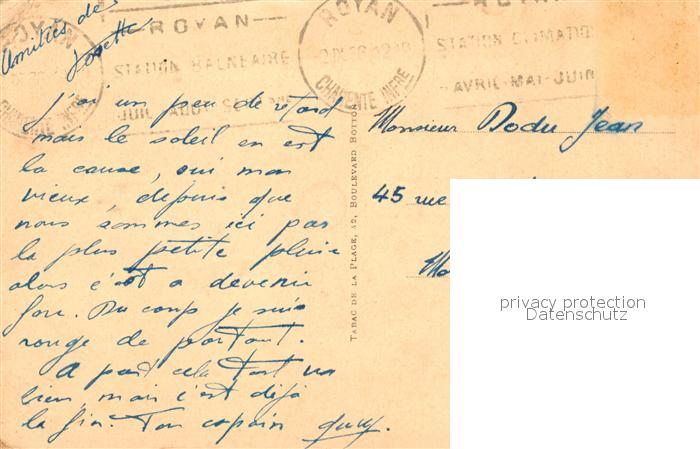 Amitiés de
Josette
ROYAN
STATION BALNEAIRE
ROYAN
CHARENTE INFRE
ROYAN
STATION CLIMATIQ
AVRIL-MAI-JUIN
J'ai un peu de retard
mais le soleil en est
la cause, oui mon
vieux, depuis que
nous sommes ici pas
la plus petite pluie
alors c'est a devenir
fou. Du coup je suis
rouge de partout.
A part cela tout va
bien, mais c'est déjà
la fin. Ton copain
TABAC DE LA PLAGE, 42, BOULEVARD BOTTON
Monsieur Dodu Jean
45 rue
privacy protection
Datenschutz